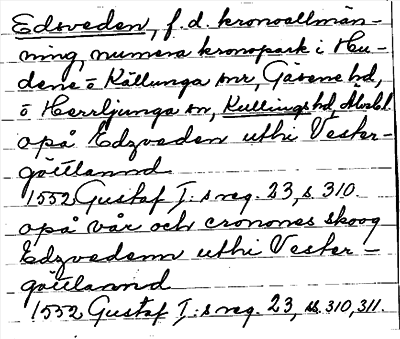 Edsveden, f.d. kronoallmän-
ning, numera kronopark i Hu-
dene o Källunga snr, Gäsene hd,
o Herrljunga sn, Kullings hd, Älvsb.l.
opå Edzveden uthi Vester-
göttlannd
1552 Gustaf I:s reg. 23, s. 310.
opå vår och cronones skoog
Edzvedenn uthi Vester-
göttlannd
1552 Gustaf I:s reg. 23, ss. 310, 311.